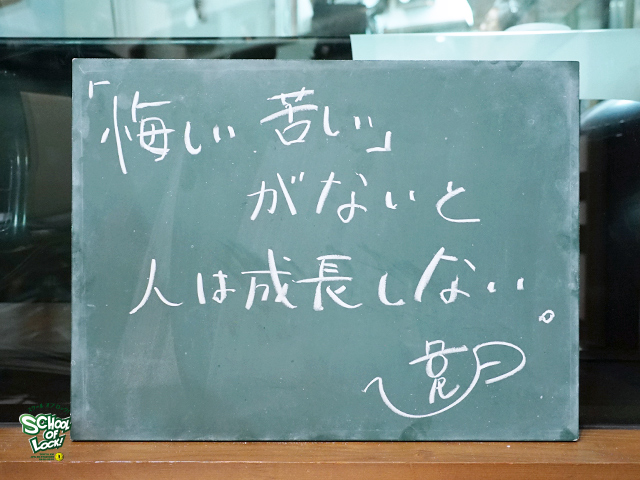 「悔しい 苦しい」
がないと
人は成長しない。
SCHOOL
OF
LOCK!